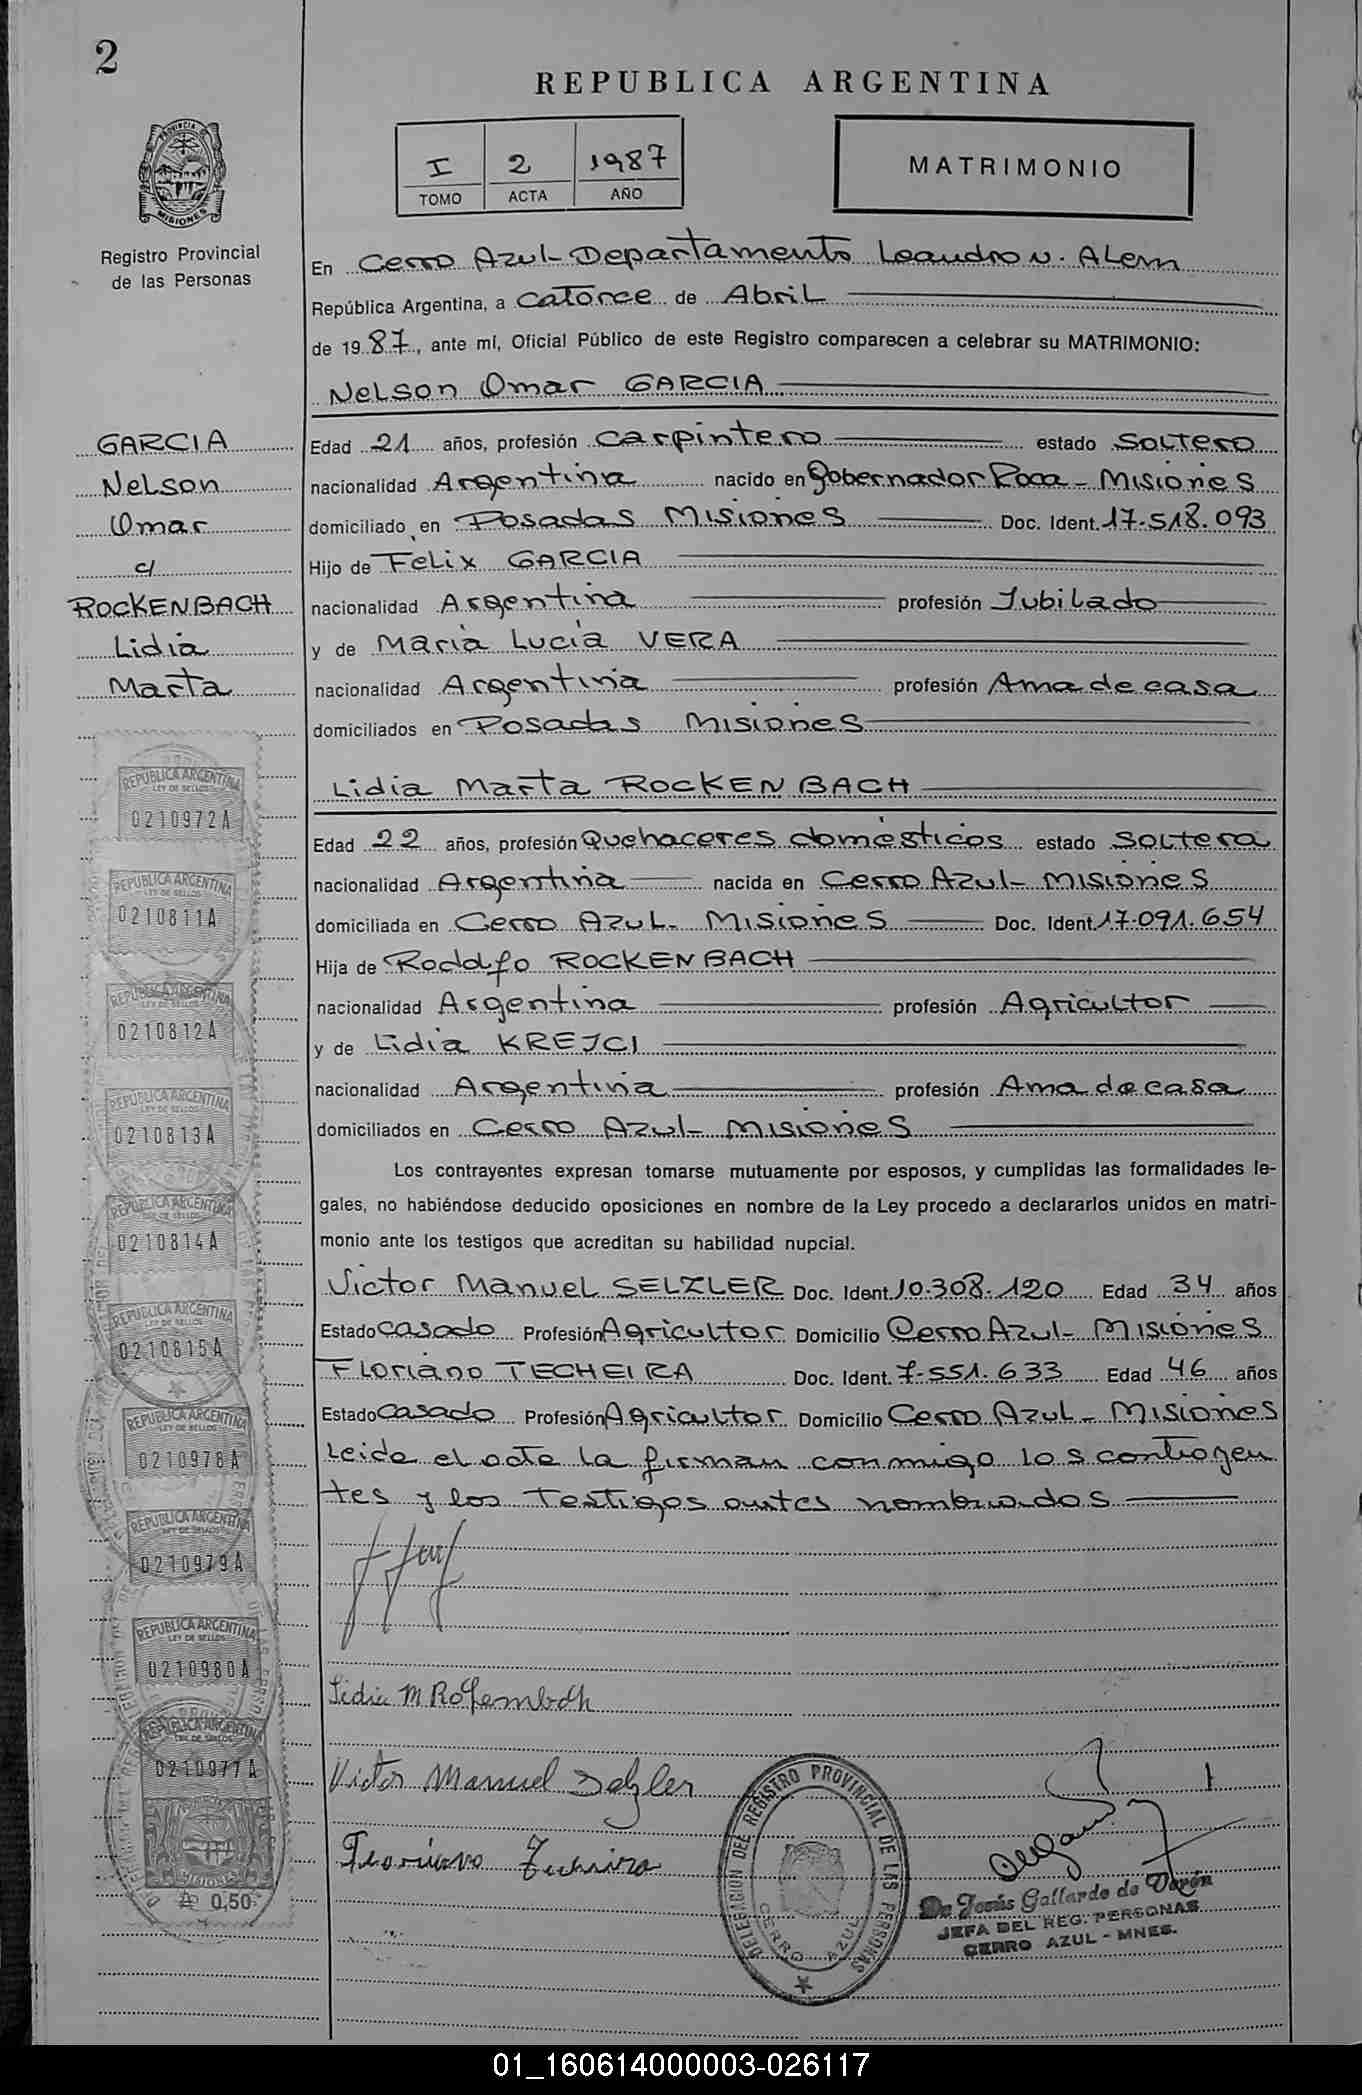 2
REPUBLICA ARGENTINA
I 2 1987
TOMO ACTA AÑO
MATRIMONIO
PROVINCIA DE
MISIONES
Registro Provincial
de las Personas
En Cerro Azul-Departamento Leandro N. Alem
República Argentina, a catorce de Abril
de 1987, ante mí, Oficial Público de este Registro comparecen a celebrar su MATRIMONIO:
Nelson Omar GARCIA
GARCIA
Nelson
Omar
c/
ROCKENBACH
Lidia
Marta
Edad 21 años, profesión carpintero estado soltero
nacionalidad Argentina nacido en Gobernador Roca - Misiones
domiciliado en Posadas Misiones Doc. Ident. 17.518.093
Hijo de Félix GARCIA
nacionalidad Argentina profesión Jubilado
y de María Lucía VERA
nacionalidad Argentina profesión Ama de casa
domiciliados en Posadas Misiones
Lidia Marta ROCKENBACH
Edad 22 años, profesión Quehaceres domésticos estado soltera
nacionalidad Argentina nacida en Cerro Azul- Misiones
domiciliada en Cerro Azul- Misiones Doc. Ident. 17.091.654
Hija de Rodolfo ROCKENBACH
nacionalidad Argentina profesión Agricultor
y de Lidia KREJCI
nacionalidad Argentina profesión Ama de casa
domiciliados en Cerro Azul- Misiones
Los contrayentes expresan tomarse mutuamente por esposos, y cumplidas las formalidades le-
gales, no habiéndose deducido oposiciones en nombre de la Ley procedo a declararlos unidos en matri-
monio ante los testigos que acreditan su habilidad nupcial.
Victor Manuel SELZLER Doc. Ident. 10.308.120 Edad 34 años
Estado casado Profesión Agricultor Domicilio Cerro Azul- Misiones
Floriano TECHEIRA Doc. Ident. 7.551.633 Edad 46 años
Estado casado Profesión Agricultor Domicilio Cerro Azul- Misiones
Leida el acta la firman conmigo los contrayen
tes y los testigos antes nombrados
REPUBLICA ARGENTINA
LEY DE SELLOS
0210972A
REPUBLICA ARGENTINA
LEY DE SELLOS
0210811A
REPUBLICA ARGENTINA
LEY DE SELLOS
0210812A
REPUBLICA ARGENTINA
LEY DE SELLOS
0210813A
REPUBLICA ARGENTINA
LEY DE SELLOS
0210814A
REPUBLICA ARGENTINA
LEY DE SELLOS
0210815A
REPUBLICA ARGENTINA
LEY DE SELLOS
0210978A
REPUBLICA ARGENTINA
LEY DE SELLOS
0210979A
REPUBLICA ARGENTINA
LEY DE SELLOS
0210980A
REPUBLICA ARGENTINA
LEY DE SELLOS
0210977A
MISIONES
0,50
Lidia M
Victor Manuel Selzler
Floriano
DELEGACION DEL REGISTRO PROVINCIAL DE LAS PERSONAS
CERRO AZUL
De Jesús Gallardo de Verón
JEFA DEL REG. PERSONAS
CERRO AZUL - MNES.
01_160614000003-026117